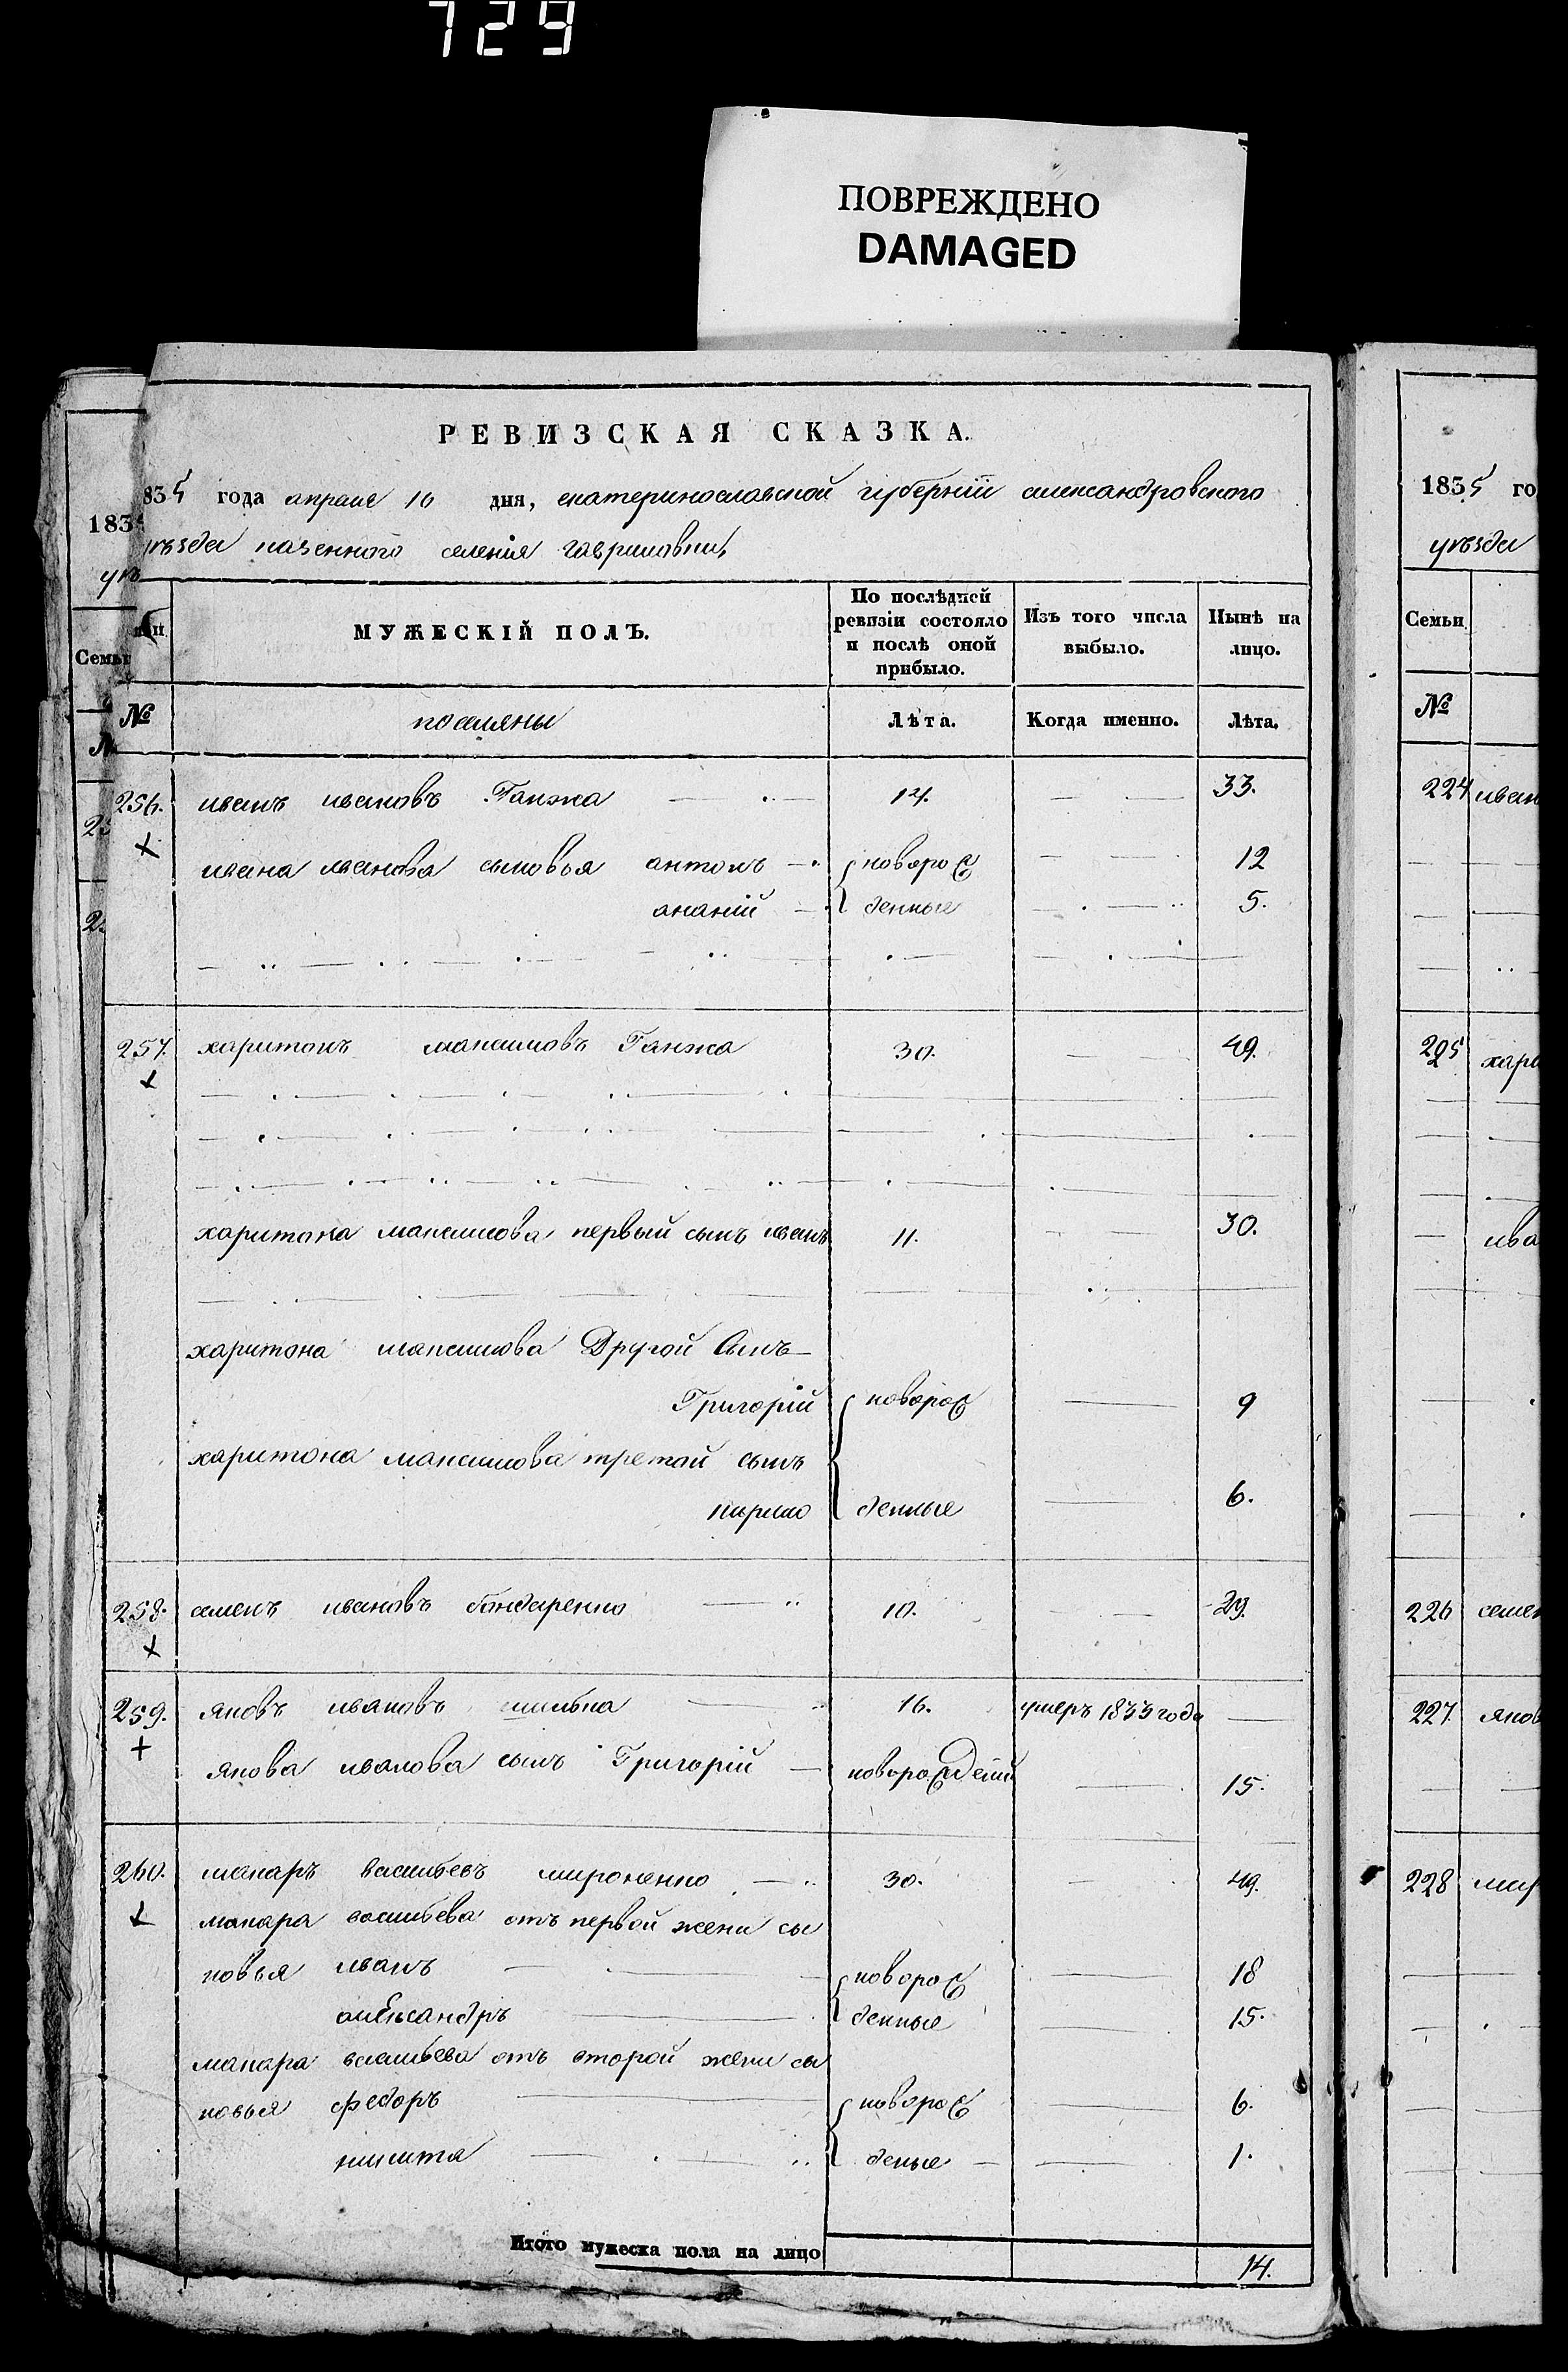 729
ПОВРЕЖДЕНО
DAMAGED
РЕВИЗСКАЯ СКАЗКА.
835 года апреля 10 дня, екатеринославской губернiи александровского
уѣзда казенного селенiя гавриловки,
МУЖЕСКIЙ ПОЛЪ.
По послѣдней ревизiи состояло и послѣ оной прибыло.
Изъ того числа выбыло.
Нынѣ на лицо.
№ поселяны Лѣта. Когда именно. Лѣта.
256. иванъ ивановъ Ганжа 14. 33.
ивана иванова сыновья антонъ новорож 12
ананiй денные 5.
257. харитонъ максимовъ Ганжа 30. 49.
харитона максимова первый сынъ иванъ 11. 30.
харитона максимова Другой Сынъ
Григорiй новорож 9
харитона максимова третой сынъ
кирило денные 6.
258. семенъ ивановъ бондаренко 10. 29.
259. яковъ ивановъ 16. умеръ 1833 года
якова иванова сынъ Григорiй новорожденый 15.
260. макаръ васильевъ мироненко 30. 49.
макара васильева отъ первой жени сы
новья иванъ новорож 18
александръ денные 15.
макара васильева отъ второй жени сы
новья федоръ новорож 6.
никита деные 1.
Итого мужеска пола на лицо 14.
183
Семьи
1835 го
уѣзда
Семьи
№
224 иван
225 хари
ива
226 семен
227. яков
228